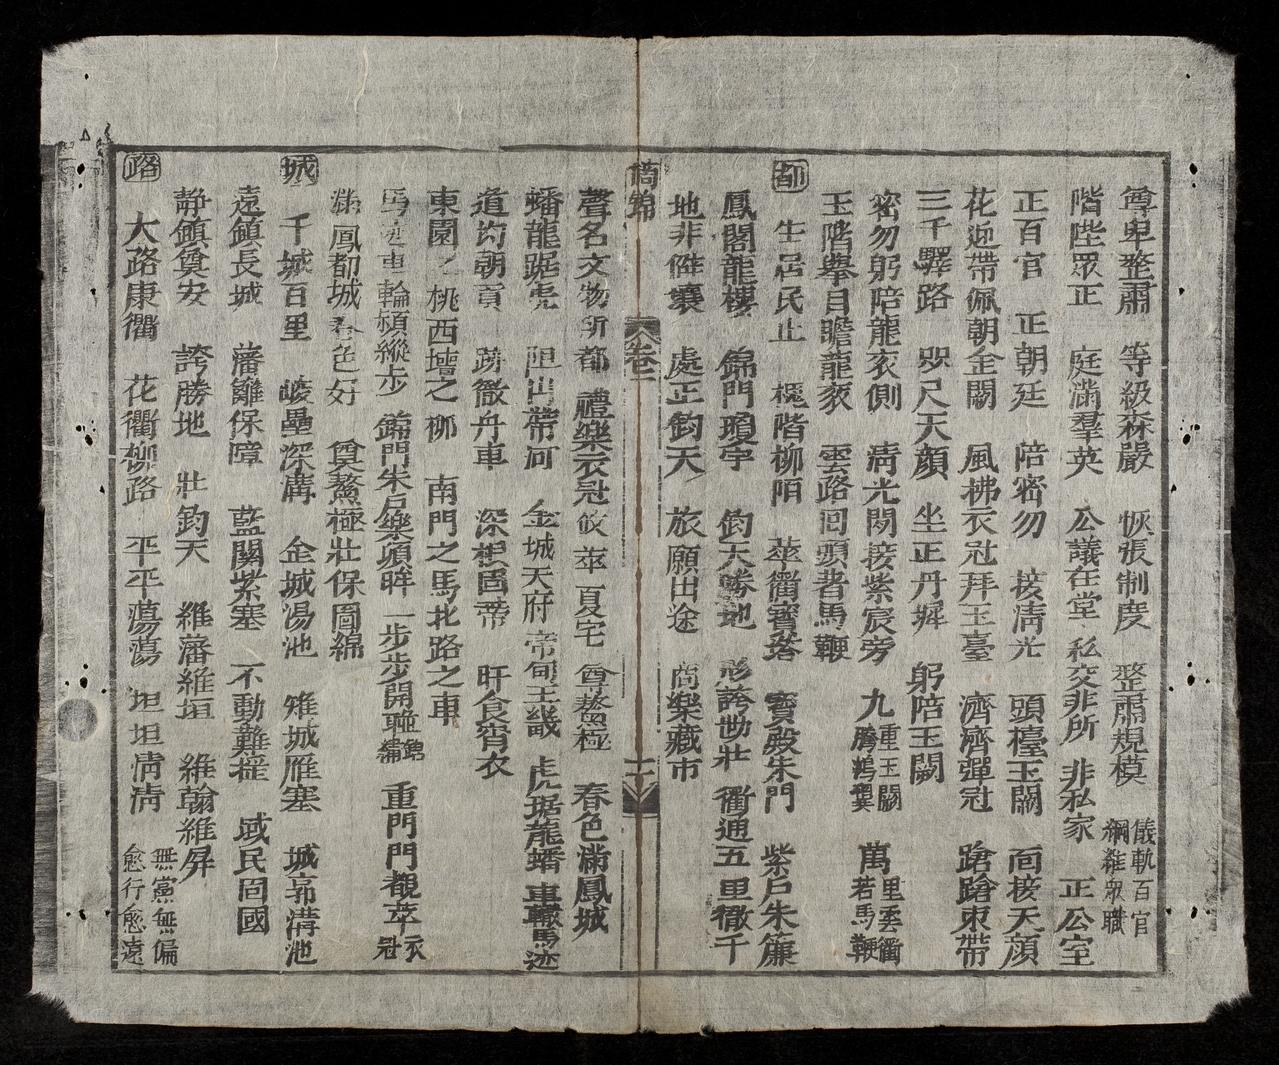 尊卑整肅　等級森嚴　恢張制度　整肅規模　儀軌百官　綱維眾職
階陛眾正　庭滿羣英　公議在堂　私交非所　非私家　正公室
正百官　正朝廷　陪密勿　接淸光　頭檯玉闕　面接天顔
花迎帶佩朝金闕　風拂衣冠拜玉臺　濟濟彈冠　蹌蹌束帶
三千驛路　咫尺天顔　坐正丹墀　躬陪玉闕
密勿躬陪龍衮側　淸光閒接紫宸旁　九重玉闕　騰鵷翼　萬里雲衢　若馬鞭
玉階擧目瞻龍衮　雲路回頭著馬鞭
都　生居民止　槐階柳陌　華衢寶塔　寶殿朱門　紫戶朱簾
鳳閣龍樓　錦門瓊宇　鈞天勝地　形誇勘壯　衢通五里徹千
地非僻壤　處正鈞天　旅願出途　商樂藏市
錦　卷一　十六
聲名文物所都　禮樂衣冠攸萃　夏宅　尊鰲極　春色滿鳳城
蟠龍踞虎　阻山帶河　金城天府　帝甸王畿　虎踞龍蟠　車轍馬迹
道均朝貢　跡徹丹車　深根固蔕　旰食宵衣
東園之桃　西壇之柳　南門之馬　北路之車
車輪頻縱步　錦門朱戶樂頌眸　一步步開聯錦繡　重門門覩萃衣冠
滿鳳都城春色好　奠鰲極壯保圖綿
城　千城百里　峻壘深溝　金城湯池　雉城雁塞　城郭溝池
遠鎭長城　藩籬保障　藍關紫塞　不動難搖　域民固國
靜鎭奠安　誇勝地　壯鈞天　維藩維垣　維翰維屛
路　大路康衢　花衢柳路　平平蕩蕩　坦坦淸淸　無黨無偏　愈行愈遠